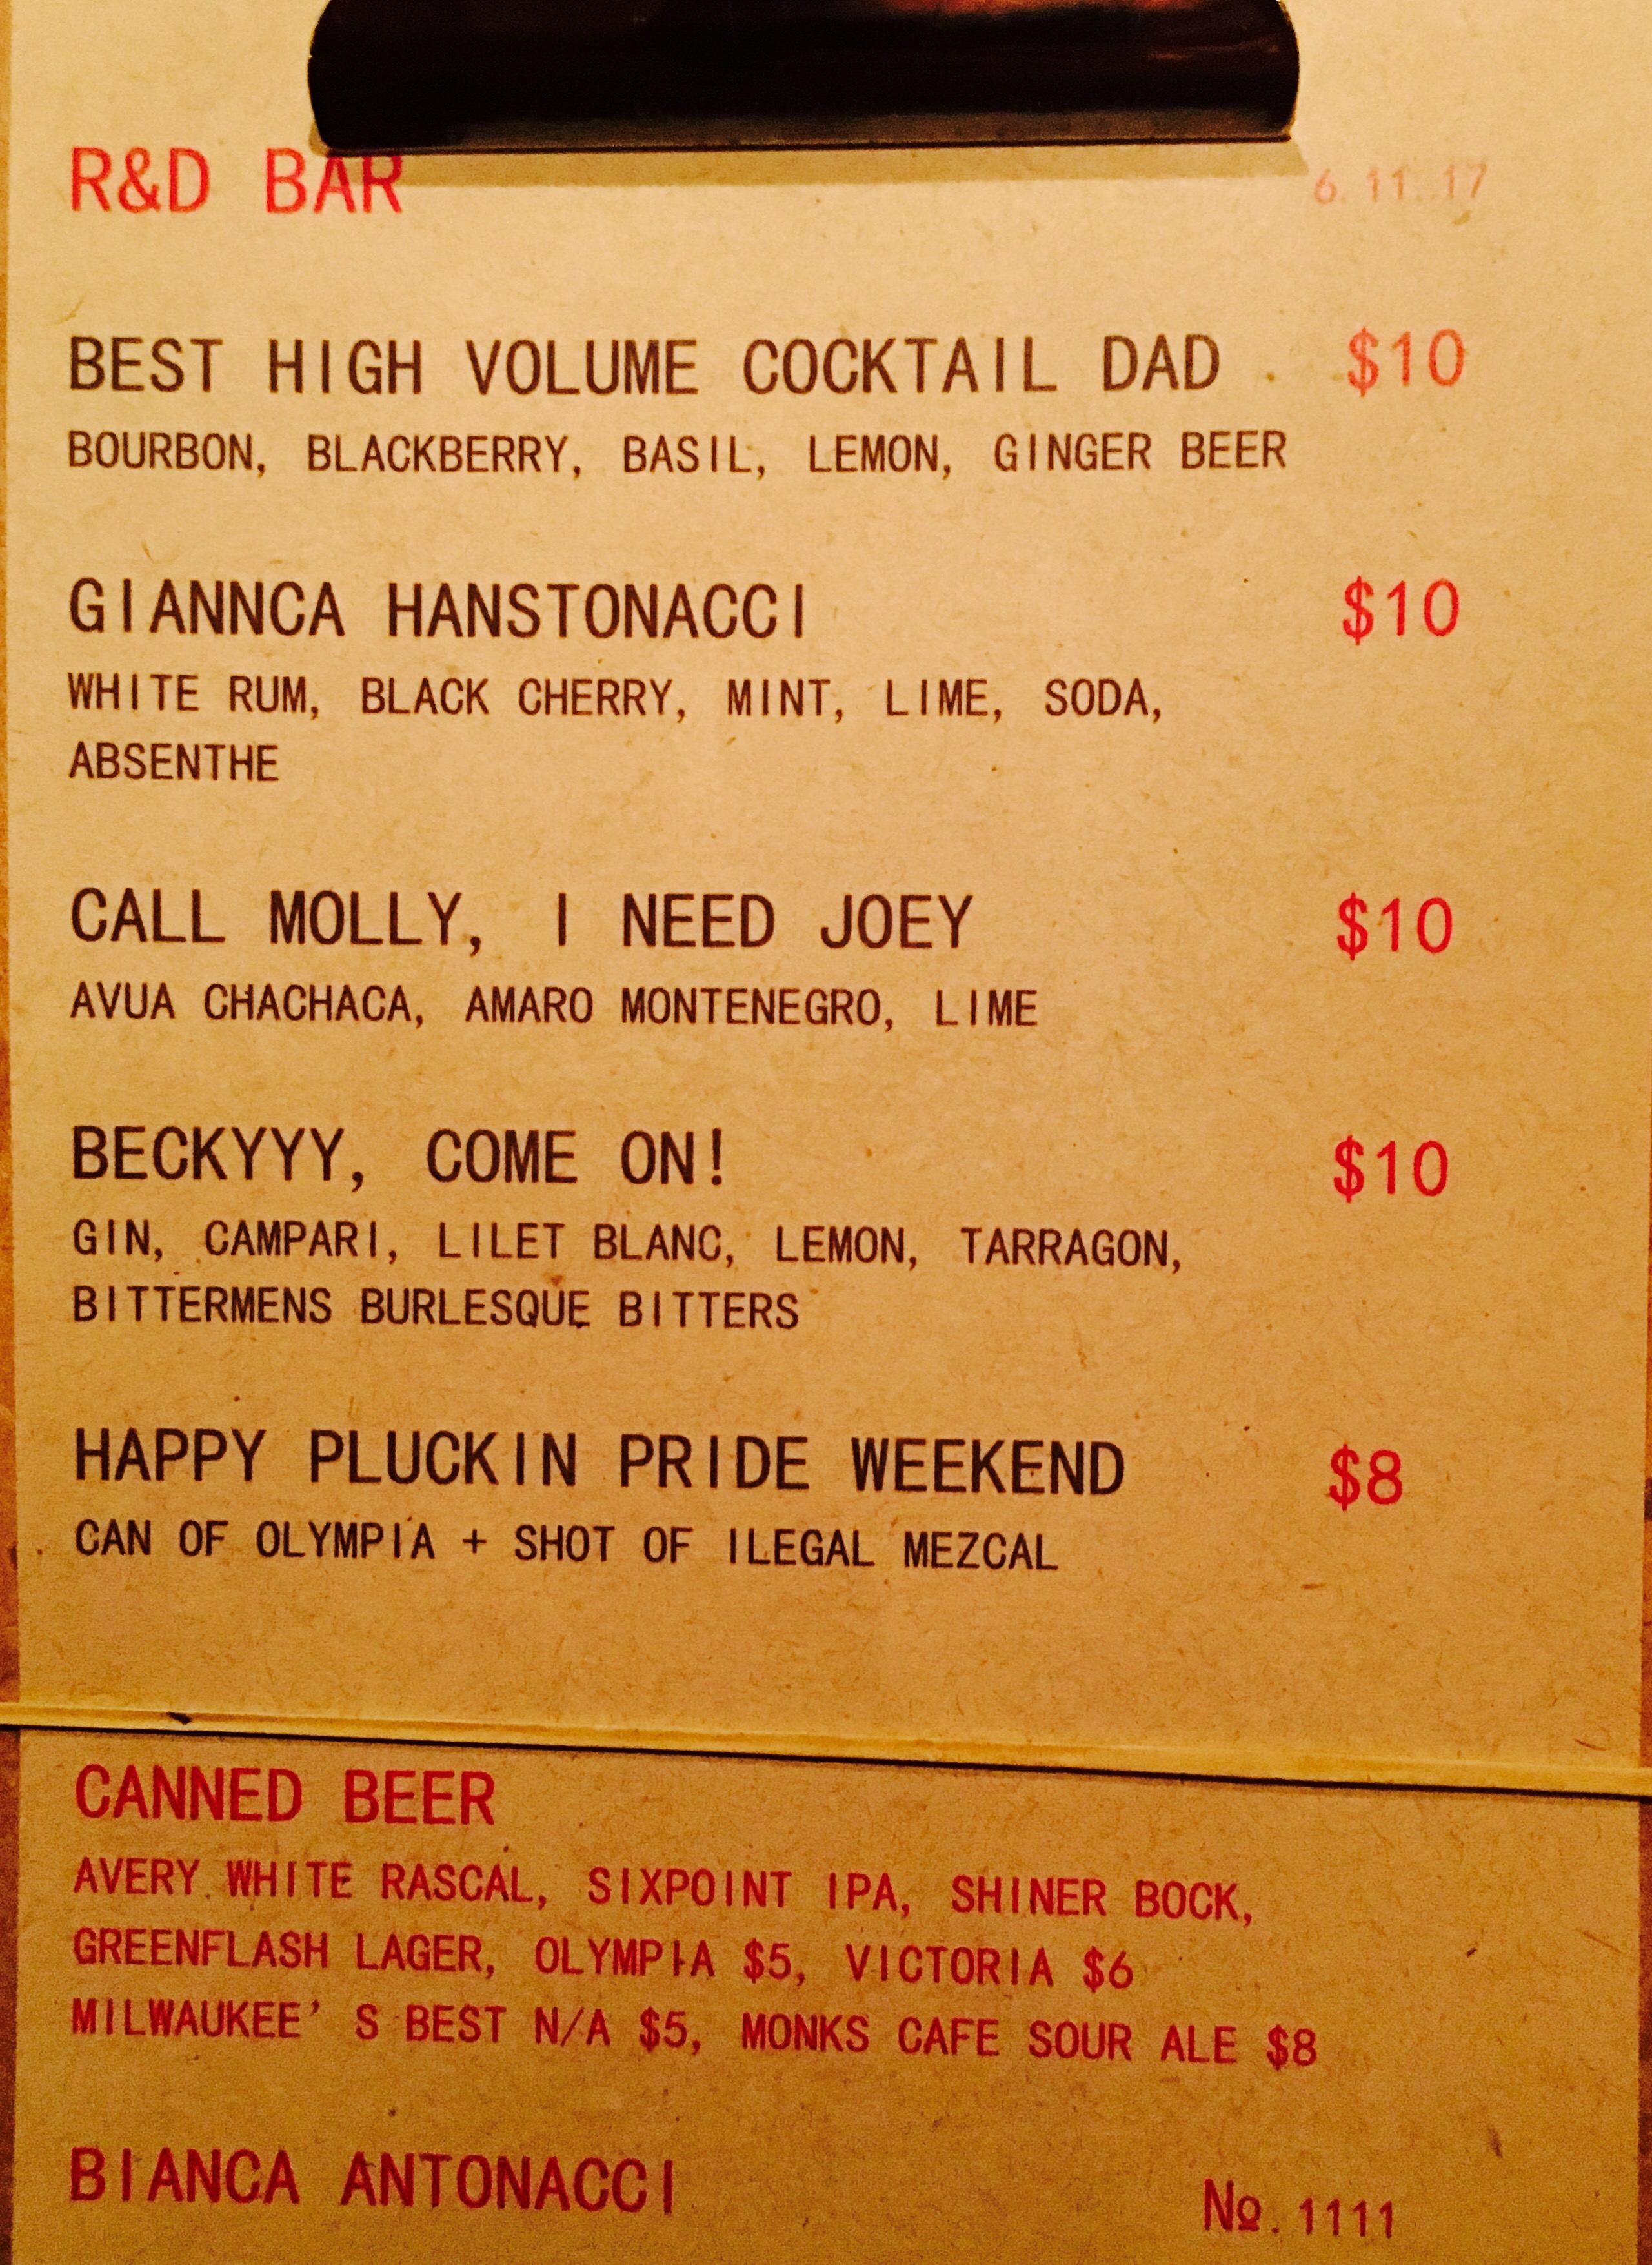 R&D BAR 6.11.17
BEST HIGH VOLUME COCKTAIL DAD $10
BOURBON, BLACKBERRY, BASIL, LEMON, GINGER BEER
GIANNCA HANSTONACCI $10
WHITE RUM, BLACK CHERRY, MINT, LIME, SODA,
ABSENTHE
CALL MOLLY, I NEED JOEY $10
AVUA CHACHACA, AMARO MONTENEGRO, LIME
BECKYYY, COME ON! $10
GIN, CAMPARI, LILET BLANC, LEMON, TARRAGON,
BITTERMENS BURLESQUE BITTERS
HAPPY PLUCKIN PRIDE WEEKEND $8
CAN OF OLYMPIA + SHOT OF ILEGAL MEZCAL
CANNED BEER
AVERY WHITE RASCAL, SIXPOINT IPA, SHINER BOCK,
GREENFLASH LAGER, OLYMPIA $5, VICTORIA $6
MILWAUKEE'S BEST N/A $5, MONKS CAFE SOUR ALE $8
BIANCA ANTONACCI No. 1111